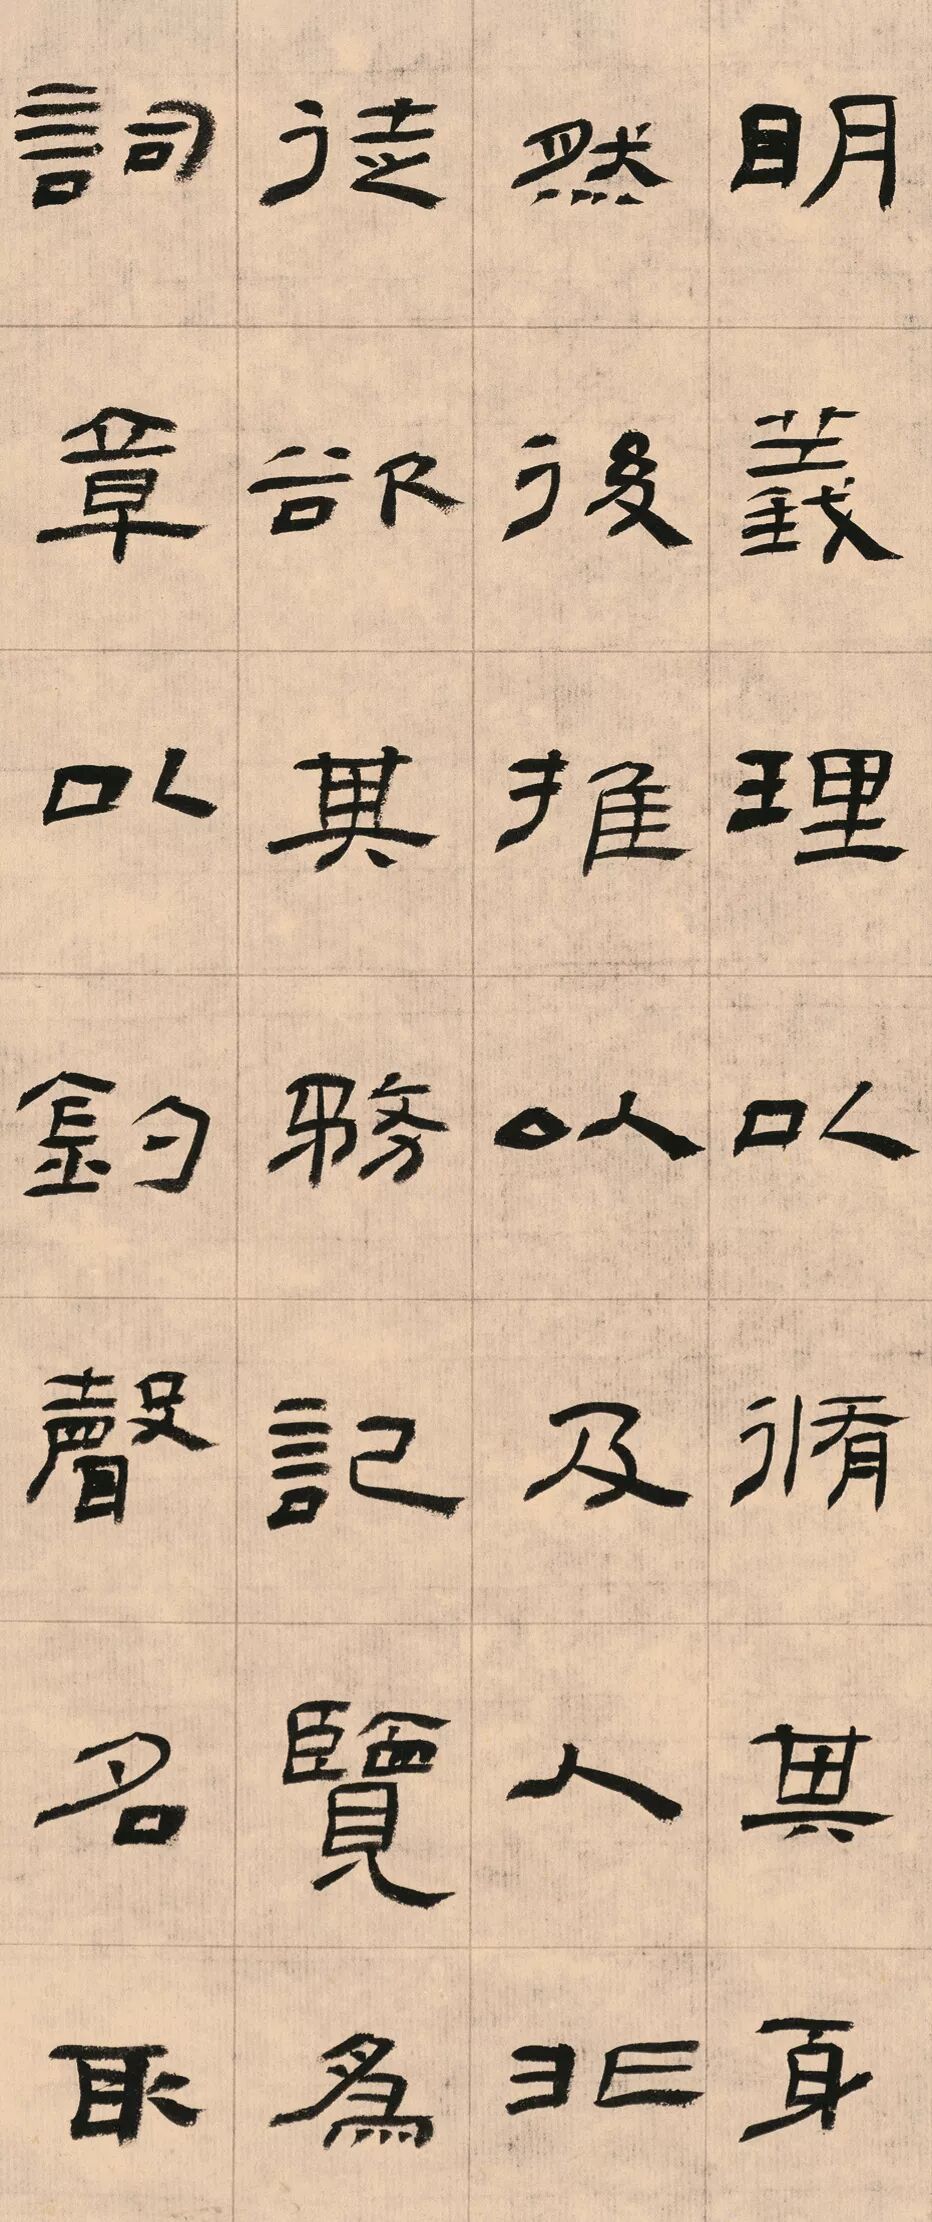 明義理以脩其身
然後推以及人非
徒欲其務記覽為
詞章以釣聲名取